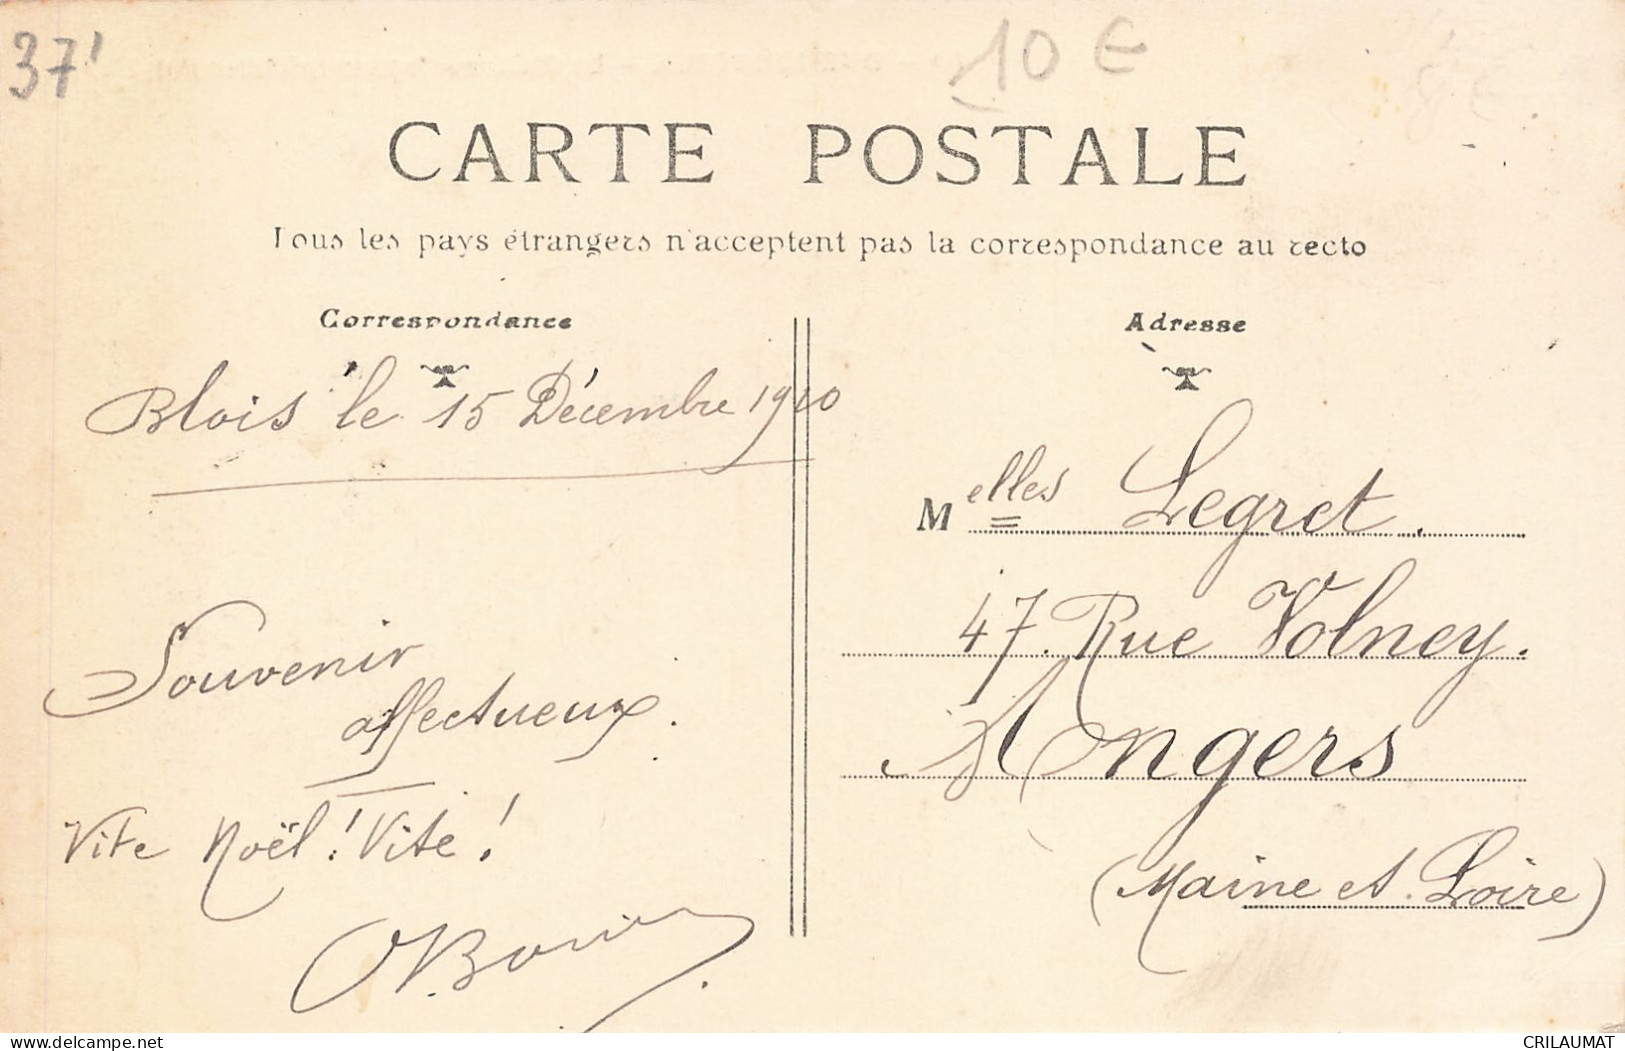 37'
10 €
8 €
CARTE POSTALE
Tous les pays étrangers n'acceptent pas la correspondance au recto
Correspondance
Adresse
Blois le 15 Décembre 1910
Melles Legret.
47. Rue Volney.
Angers
(Maine et Loire)
Souvenir
affectueux.
Vite Noël! Vite!
delcampe.net
CRILAUMAT